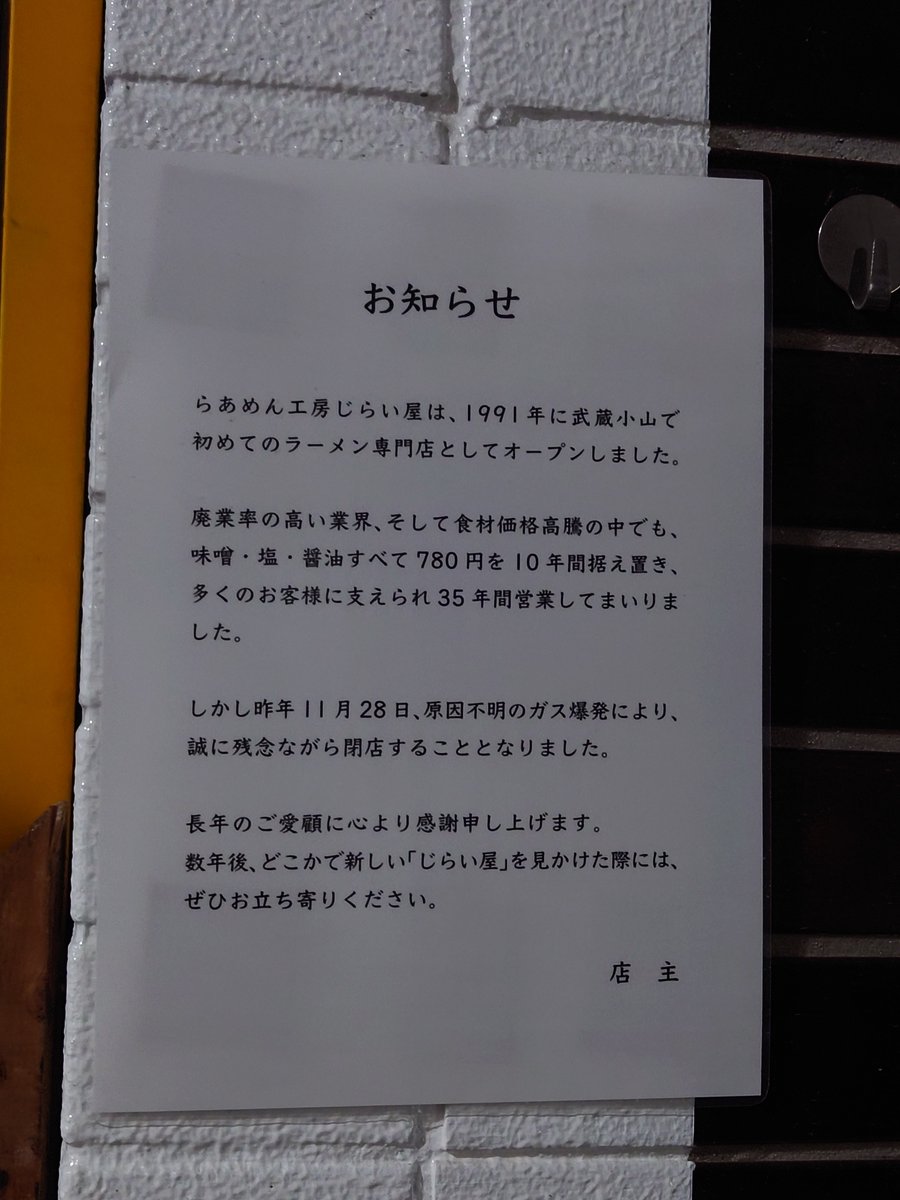 お知らせ
らあめん工房じらい屋は、1991年に武蔵小山で
初めてのラーメン専門店としてオープンしました。
廃業率の高い業界、そして食材価格高騰の中でも、
味噌・塩・醤油すべて780円を10年間据え置き、
多くのお客様に支えられ35年間営業してまいりま
した。
しかし昨年11月28日、原因不明のガス爆発により、
誠に残念ながら閉店することとなりました。
長年のご愛顧に心より感謝申し上げます。
数年後、どこかで新しい「じらい屋」を見かけた際には、
ぜひお立ち寄りください。
店　主